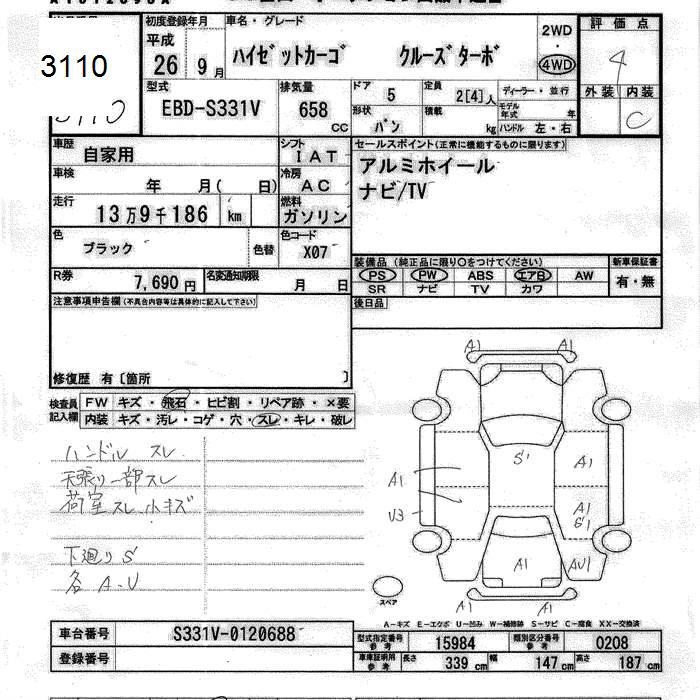 3110
3110
初度登録年月
平成
26 9月
車名・グレード
ハイゼットカーゴ クルーズターボ
2WD
・
4WD
評価点
4
外装 内装
C
型式
EBD-S331V
排気量
658
CC
ドア
5
定員
2[4]人
形状
バン
積載
kg
ディーラー・並行
モデル年式 年
ハンドル 左・右
車歴
自家用
シフト
IAT
車検
年 月( 日)
冷房
AC
走行
13万9千186 km
燃料
ガソリン
色
ブラック
色替
色コード
X07
R券
7,690円
名変通知期限
月 日
セールスポイント(正常に機能するものに限ります)
アルミホイール
ナビ/TV
装備品 (純正品に限り〇をつけてください)
PS PW ABS エアB AW
SR ナビ TV カワ
新車保証書
有・無
後日品
注意事項申告欄(不具合内容等は具体的に記入して下さい)
修復歴 有〔箇所 〕
検査員
記入欄
FW キズ・飛石・ヒビ割・リペア跡・×要
内装 キズ・汚レ・コゲ・穴・スレ・キレ・破レ
ハンドル スレ
天張り一部スレ
荷室スレ小キズ
下廻りS
各A-U
A1 A1
S1
A1
A1
U3
A1
S1
A1
AU1
A1 A1
スペア
A-キズ E-エクボ U-凹み W-補修跡 S-サビ C-腐食 XX-交換済
車台番号 S331V-0120688
登録番号
型式指定番号 参考 15984 類別区分番号 参考 0208
車庫証明用 参考 長さ 339cm 幅 147cm 高さ 187cm